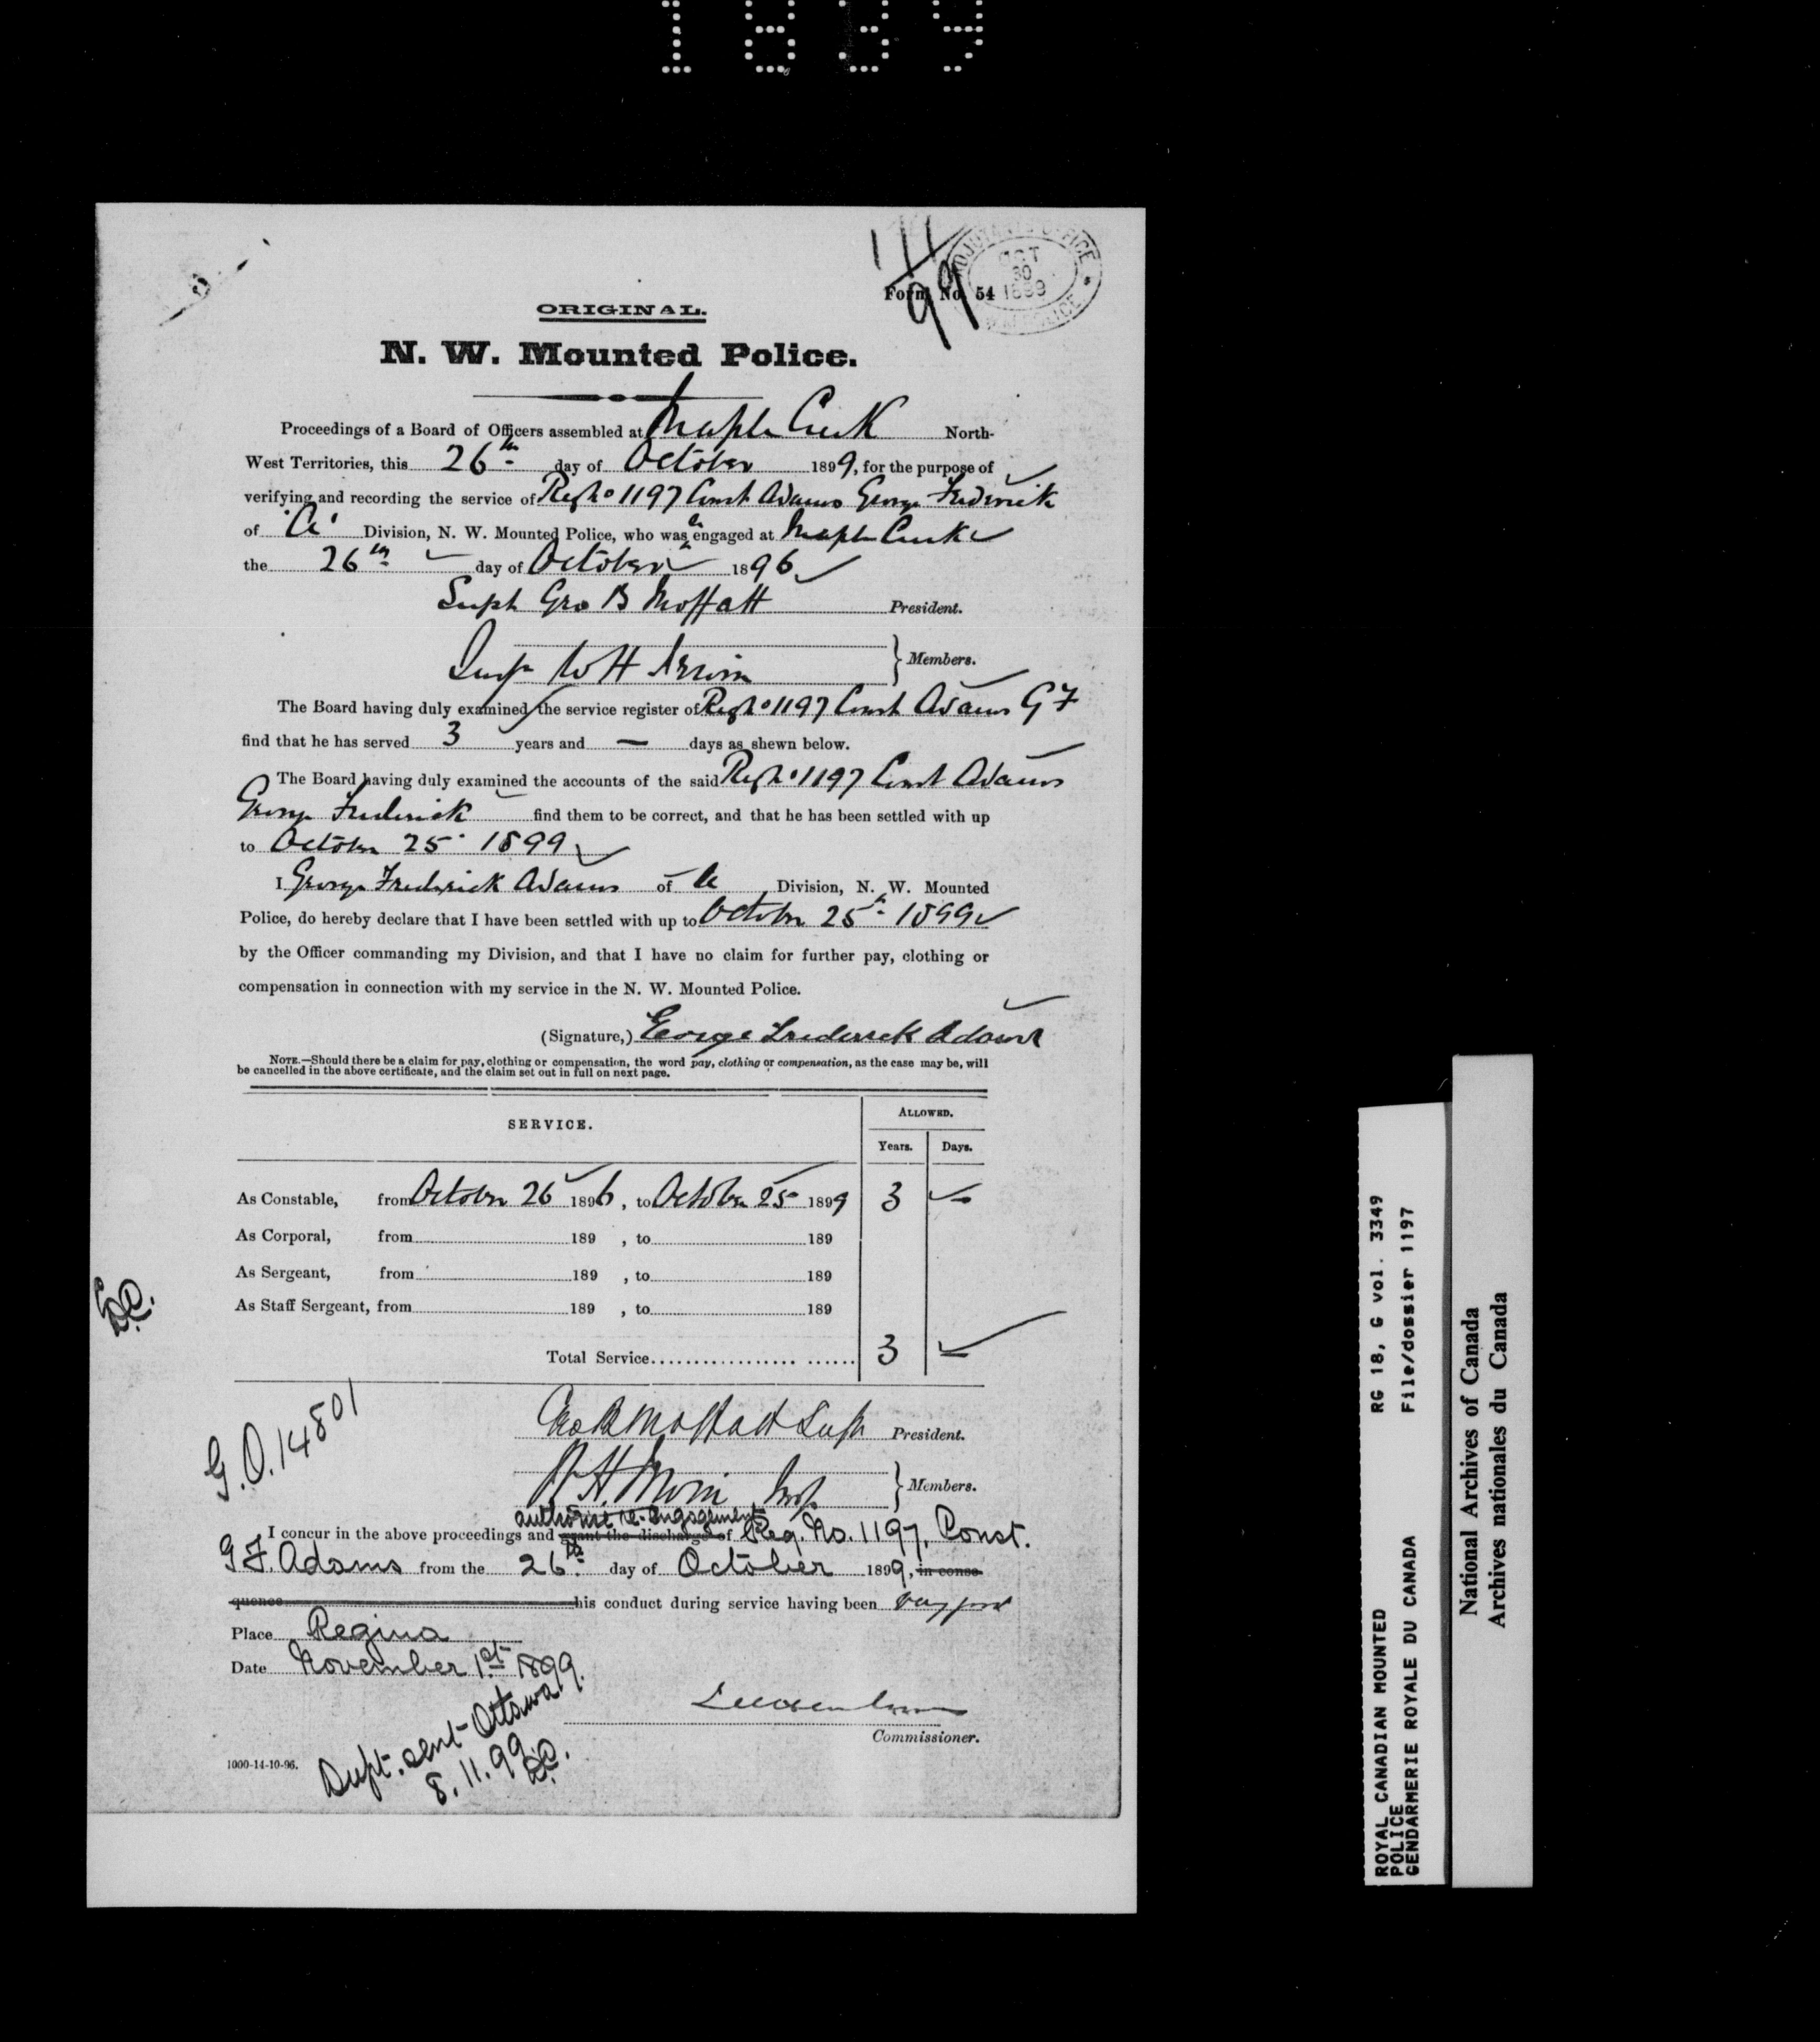 1839
111/99
ADJUTANT'S OFFICE
OCT
30
1899
N.W.M. POLICE
Form No. 54
ORIGINAL.
N. W. Mounted Police.
Proceedings of a Board of Officers assembled at Maple Creek North-
West Territories, this 26th day of October 1899, for the purpose of
verifying and recording the service of Reg No 1197 Const Adams George Frederick
of "A" Division, N. W. Mounted Police, who was re engaged at Maple Creek
the 26th day of October 1896
Supt Geo B Moffatt President.
Insp W H Irwin } Members.
The Board having duly examined the service register of Reg No 1197 Const Adams G F
find that he has served 3 years and — days as shewn below.
The Board having duly examined the accounts of the said Reg No 1197 Const Adams
George Frederick find them to be correct, and that he has been settled with up
to October 25 1899
I George Frederick Adams of A Division, N. W. Mounted
Police, do hereby declare that I have been settled with up to October 25th 1899
by the Officer commanding my Division, and that I have no claim for further pay, clothing or
compensation in connection with my service in the N. W. Mounted Police.
(Signature,) George Frederick Adams
NOTE.—Should there be a claim for pay, clothing or compensation, the word pay, clothing or compensation, as the case may be, will
be cancelled in the above certificate, and the claim set out in full on next page.
SERVICE. ALLOWED.
Years. Days.
As Constable, from October 26 1896, to October 25 1899 3 —
As Corporal, from 189 , to 189
As Sergeant, from 189 , to 189
As Staff Sergeant, from 189 , to 189
Total Service 3 —
G.O. 14801
Geo B Moffatt Supt President.
W.H. Irwin Insp } Members.
authorize re-engagement
I concur in the above proceedings and grant the discharge of Reg. No. 1197, Const.
G F. Adams from the 26th day of October 1899, in conse-
quence his conduct during service having been very good
Place Regina
Date November 1st 1899.
Commissioner.
Dupt. sent Ottawa
8.11.99
1000-14-10-96.
RG 18, G vol. 3349
File/dossier 1197
ROYAL CANADIAN MOUNTED
POLICE
GENDARMERIE ROYALE DU CANADA
National Archives of Canada
Archives nationales du Canada